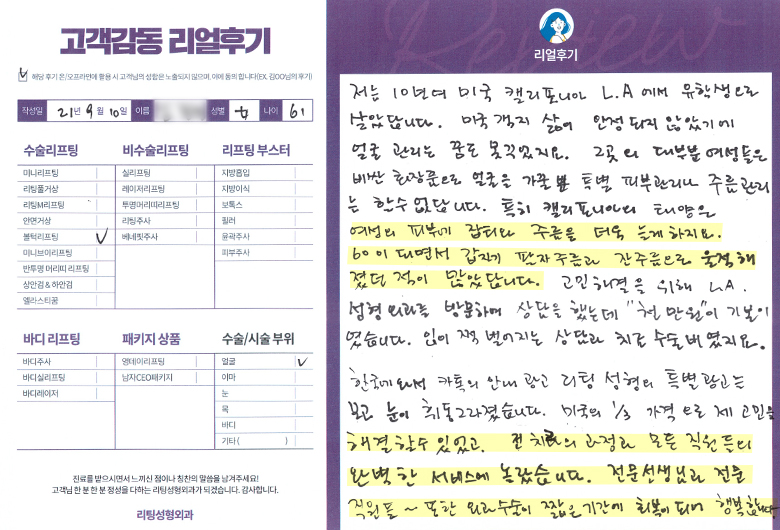 고객감동 리얼후기
해당 후기 온/오프라인에 활용 시 고객님의 성함은 노출되지 않으며, 이에 동의 합니다(EX. 김OO님의 후기)
작성일 21년 9월 10일 이름 성별 女 나이 61
수술리프팅
미니리프팅
리팅풀거상
리팅M리프팅
안면거상
볼턱리프팅
미니브이리프팅
반투명 머리띠 리프팅
상안검 & 하안검
엘라스티꿈
비수술리프팅
실리프팅
레이저리프팅
투명머리띠리프팅
리팅주사
베네핏주사
리프팅 부스터
지방흡입
지방이식
보톡스
필러
윤곽주사
피부주사
바디 리프팅
바디주사
바디실리프팅
바디레이저
패키지 상품
영데이리프팅
남자CEO패키지
수술/시술 부위
얼굴
이마
눈
목
바디
기타 ( )
진료를 받으시면서 느끼신 점이나 칭찬의 말씀을 남겨주세요!
고객님 한 분 한 분 정성을 다하는 리팅성형외과가 되겠습니다. 감사합니다.
리팅성형외과
Review
리얼후기
저는 10년여 미국 캘리포니아 L.A에서 유학생으로
살았답니다. 미국 객지 삶에 안정되지 않았기에
얼굴 관리는 꿈도 못꾸었지요. 그곳의 대부분 여성들은
비싼 화장품으로 얼굴을 가꿀뿐 특별 피부관리나 주름관리
는 할수 없답니다. 특히 캘리포니아의 태양은
여성의 피부가 잡티와 주름을 더욱 늘게하지요.
60이 되면서 갑자기 팔자주름과 잔주름으로 울적해
졌던 적이 많았답니다. 고민해결을 위해 L.A.
성형외과를 방문하여 상담을 했는데 "천만원"이 기본이
였습니다. 입이 쩍 벌어지는 상담과 치료 수술비였지요.
한국에 와서 카톡의 안내 광고 리팅 성형의 특별광고는
보고 눈이 휘동그라졌습니다. 미국의 1/3 가격으로 제 고민을
해결할수 있었고. 전 치료의 과정과 모든 직원들의
완벽한 서비스에 놀랐습니다. 전문선생님과 전문
직원들 ~ 또한 외과수술이 짧은기간에 회복이 되어 행복합니다